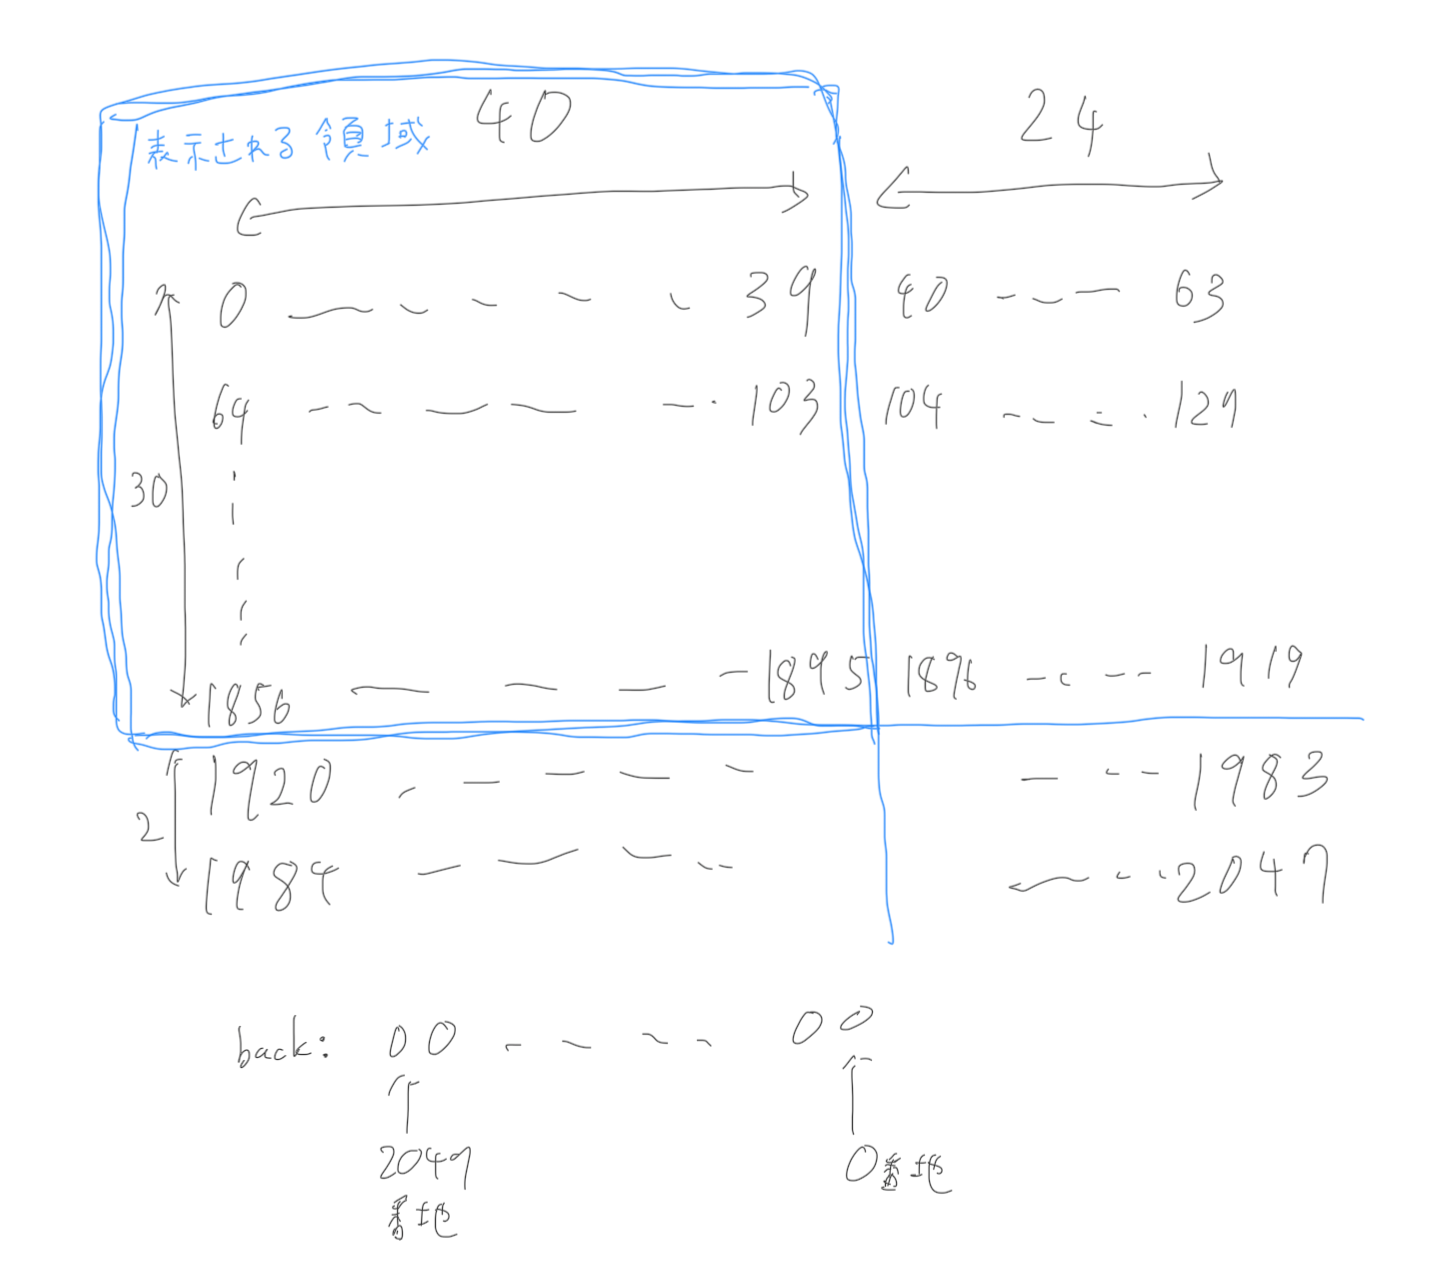 表示される領域 40 24
0 39 40 63
64 103 104 127
30
1856 1895 1896 1919
1920 1983
2
1984 2047
back: 00 00
2047 0番地
番地